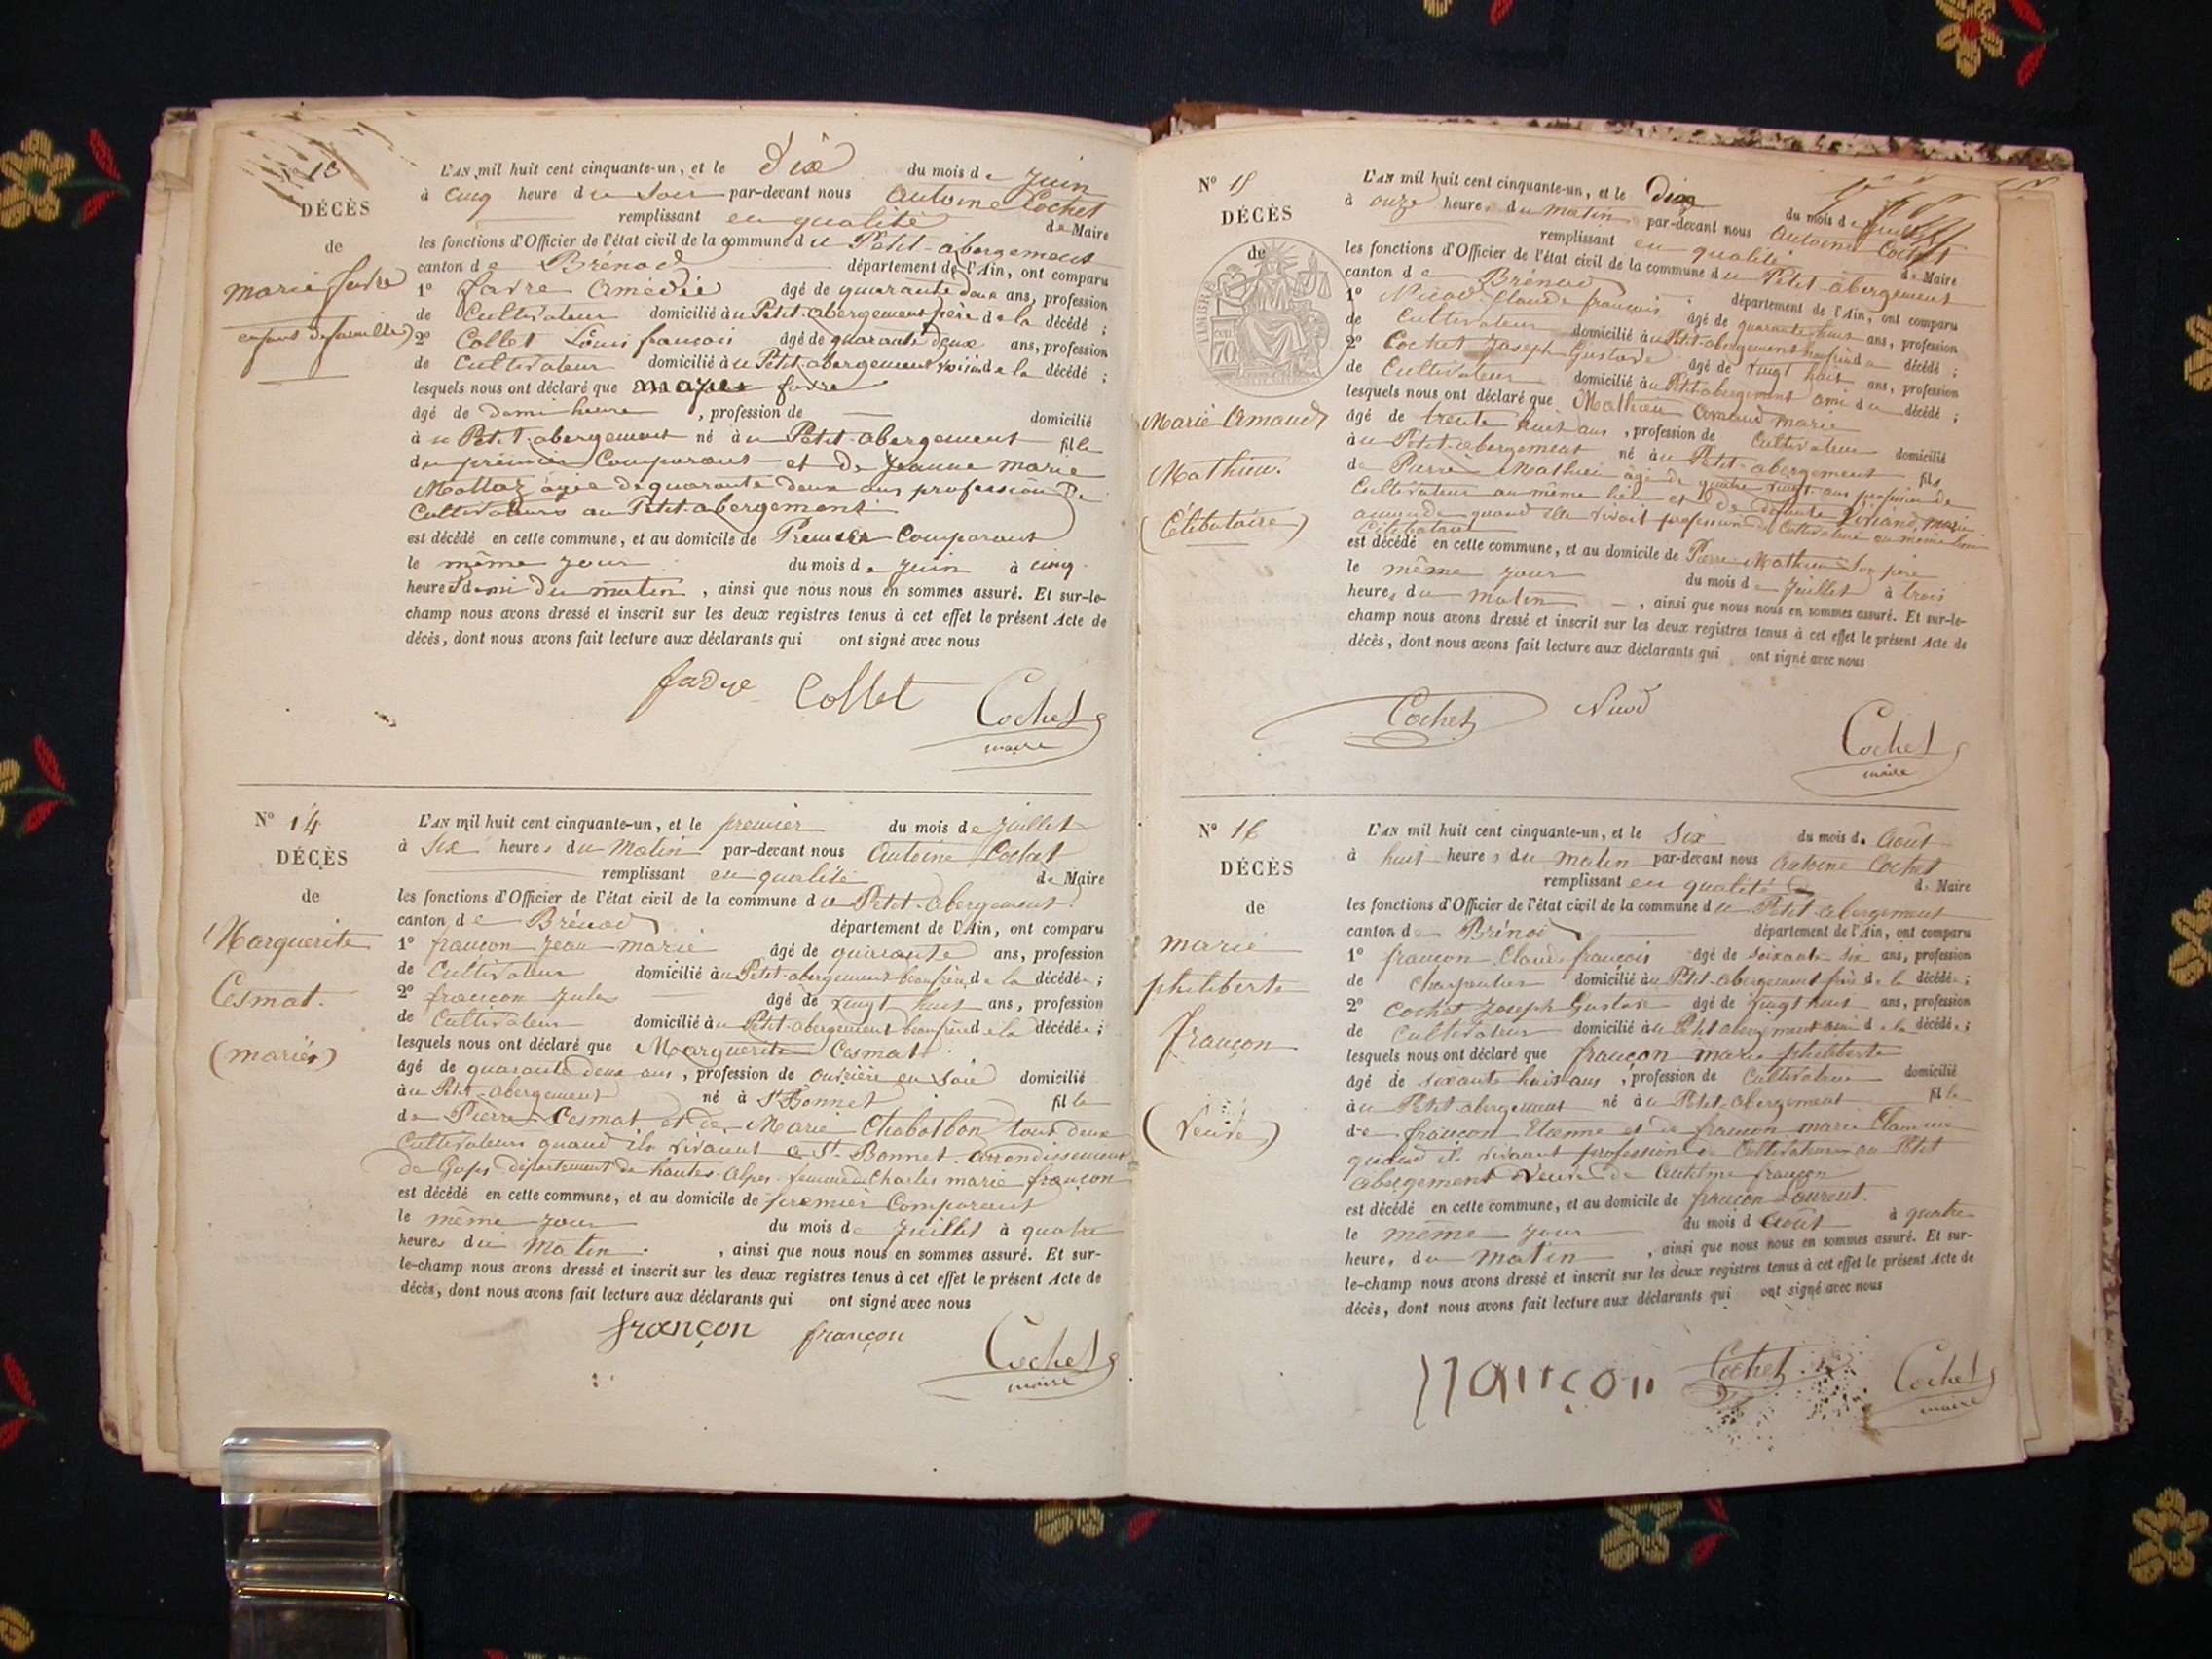 13
DÉCÈS
de
marie favre
enfant de famille)
L'AN mil huit cent cinquante-un, et le dix du mois de Juin
à cinq heure du soir par-devant nous Antoine Cochet
remplissant en qualité de Maire
les fonctions d'Officier de l'état civil de la commune du Petit-abergement
canton de Brénod département de l'Ain, ont comparu
1° favre Amédée âgé de quarante deux ans, profession
de Cultivateur domicilié au Petit-abergement père de la décédé ;
2° Collet Louis françois âgé de quarante deux ans, profession
de Cultivateur domicilié au Petit-abergement voisin de la décédé ;
lesquels nous ont déclaré que marie favre
âgé de demi heure , profession de — domicilié
à u Petit-abergement né à u Petit-abergement fille
du premier Comparant et de Jeanne marie
Mottaz âgée de quarante deux ans profession De
Cultivateurs au Petit-abergement
est décédé en cette commune, et au domicile de Premier Comparant
le même jour du mois de Juin à cinq
heures demi du matin , ainsi que nous nous en sommes assuré. Et sur-le-
champ nous avons dressé et inscrit sur les deux registres tenus à cet effet le présent Acte de
décès, dont nous avons fait lecture aux déclarants qui ont signé avec nous
favre Collet Cochet
maire
N° 14
DÉCÈS
de
Marguerite
Cesmat.
(mariée)
L'AN mil huit cent cinquante-un, et le premier du mois de Juillet
à six heures du Matin par-devant nous Antoine Cochet
remplissant en qualité de Maire
les fonctions d'Officier de l'état civil de la commune du Petit-abergement
canton de Brénod département de l'Ain, ont comparu
1° françon Jean marie âgé de quarante ans, profession
de Cultivateur domicilié au Petit-abergement beaufrère de la décédée ;
2° françon Jules âgé de vingt huit ans, profession
de Cultivateur domicilié au Petit-abergement beaufrère de la décédée ;
lesquels nous ont déclaré que Marguerite Cesmat
âgé de quarante deux ans , profession de ouvrière en soie domicilié
à u Petit-abergement né à St Bonnet fille
de Pierre Cesmat et de Marie Chabolbon tous deux
Cultivateurs quand ils vivaient à St-Bonnet arrondissement
de Gaps département de hautes-Alpes femme de Charles marie françon
est décédé en cette commune, et au domicile de premier Comparant
le même jour du mois de Juillet à quatre
heures du Matin , ainsi que nous nous en sommes assuré. Et sur-
le-champ nous avons dressé et inscrit sur les deux registres tenus à cet effet le présent Acte de
décès, dont nous avons fait lecture aux déclarants qui ont signé avec nous
françon françon Cochet
maire
N° 15
DÉCÈS
de
TIMBRE
70
Marie Amand
Mathieu.
(Célibataire)
L'AN mil huit cent cinquante-un, et le Dix du mois de Juillet
à onze heures du matin par-devant nous Antoine Cochet
remplissant en qualité de Maire
les fonctions d'Officier de l'état civil de la commune du Petit-abergement
canton de Brénod département de l'Ain, ont comparu
1° Nicod Claude françois âgé de quarante huit ans, profession
de Cultivateur domicilié au Petit-abergement beaufrère du décédé ;
2° Cochet Joseph Gustave âgé de vingt huit ans, profession
de Cultivateur domicilié au Petit-abergement ami du décédé ;
lesquels nous ont déclaré que Mathieu Amand marie
âgé de trente huit ans , profession de Cultivateur domicilié
à u Petit-abergement né à u Petit-abergement fils
de Pierre Mathieu âgé de quatre vingt ans profession de
Cultivateur au même lieu et de défunte marie
quand elle vivait profession de Cultivateur au même lieu
Célibataire
est décédé en cette commune, et au domicile de Pierre Mathieu son père
le même jour du mois de Juillet à trois
heures du matin , ainsi que nous nous en sommes assuré. Et sur-le-
champ nous avons dressé et inscrit sur les deux registres tenus à cet effet le présent Acte de
décès, dont nous avons fait lecture aux déclarants qui ont signé avec nous
Cochet Nicod Cochet
maire
N° 16
DÉCÈS
de
marie
philiberte
françon
(veuve)
L'AN mil huit cent cinquante-un, et le Six du mois de Août
à huit heures du matin par-devant nous Antoine Cochet
remplissant en qualité de Maire
les fonctions d'Officier de l'état civil de la commune du Petit-abergement
canton de Brénod département de l'Ain, ont comparu
1° françon Claude françois âgé de soixante six ans, profession
de Charpentier domicilié au Petit-abergement frère de la décédée ;
2° Cochet Joseph Gustave âgé de vingt huit ans, profession
de Cultivateur domicilié au Petit abergement ami de la décédée ;
lesquels nous ont déclaré que françon marie philiberte
âgé de soixante huit ans , profession de Cultivatrice domicilié
à u Petit-abergement né à u Petit-abergement fille
de françon Etienne et de françon marie
quand ils vivaient profession de Cultivateurs au Petit
abergement veuve de Anthelme françon
est décédé en cette commune, et au domicile de françon Laurent.
le même jour du mois d Août à quatre
heures du matin , ainsi que nous nous en sommes assuré. Et sur-
le-champ nous avons dressé et inscrit sur les deux registres tenus à cet effet le présent Acte de
décès, dont nous avons fait lecture aux déclarants qui ont signé avec nous
françon Cochet Cochet
maire